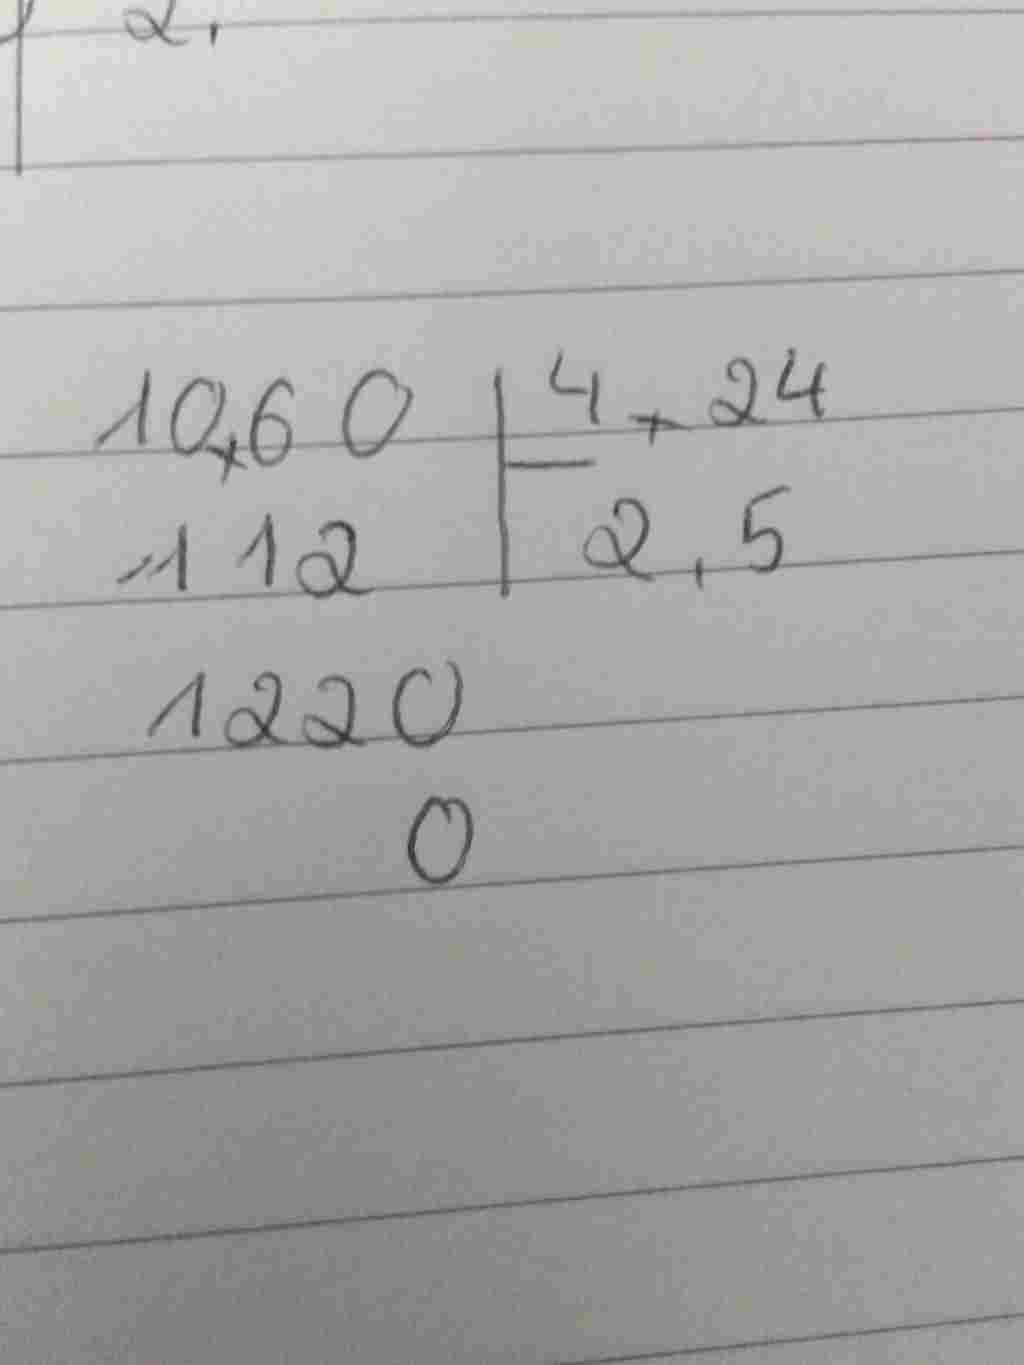 2,
10,60 4,24
112 2,5
1220
0